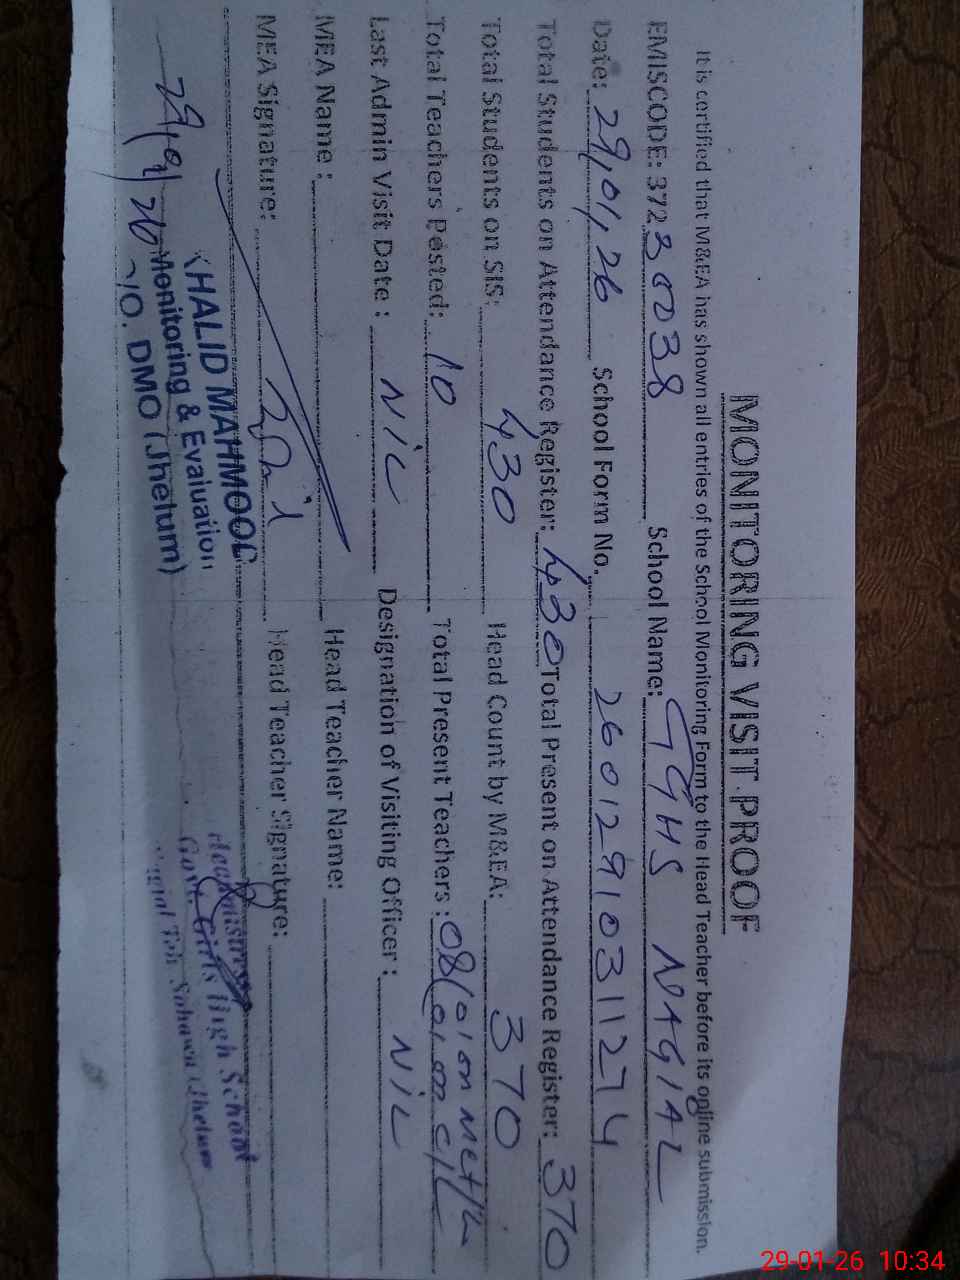 MONITORING VISIT PROOF
It is certified that M&EA has shown all entries of the School Monitoring Form to the Head Teacher before its online submission.
EMISCODE: 37230038 School Name: GGHS NAGIAL
Date: 29/01/26 School Form No. 260129103112714
Total Students on Attendance Register: 430 Total Present on Attendance Register: 370
Total Students on SIS: 430 Head Count by M&EA: 370
Total Teachers Posted: 10 Total Present Teachers: 08 (01 on Met/L
01 on C/L
Last Admin Visit Date: NIL Designation of Visiting Officer: NIL
MEA Name: Head Teacher Name:
MEA Signature: Head Teacher Signature:
KHALID MAHMOOD
Monitoring & Evaluation
O/O. DMO (Jhelum)
Headmistress
Govt. Girls High School
Nagial Teh Sohawa Jhelum
29-01-26 10:34